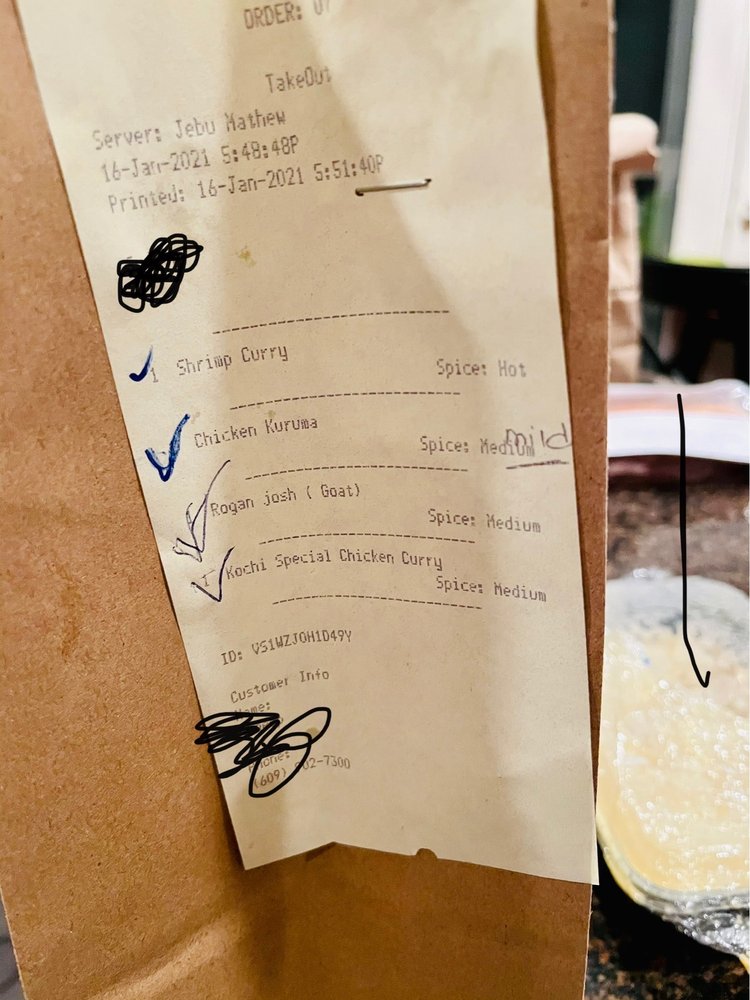 ORDER:
TakeOut
Server: Jebu Mathew
16-Jan-2021 5:48:48P
Printed: 16-Jan-2021 5:51:40P
1 Shrimp Curry
Spice: Hot
Chicken Kuruma
Spice: Medium mild
Rogan josh ( Goat)
Spice: Medium
1 Kochi Special Chicken Curry
Spice: Medium
ID:
Customer Info
Name:
Phone:
(609) 02-7300